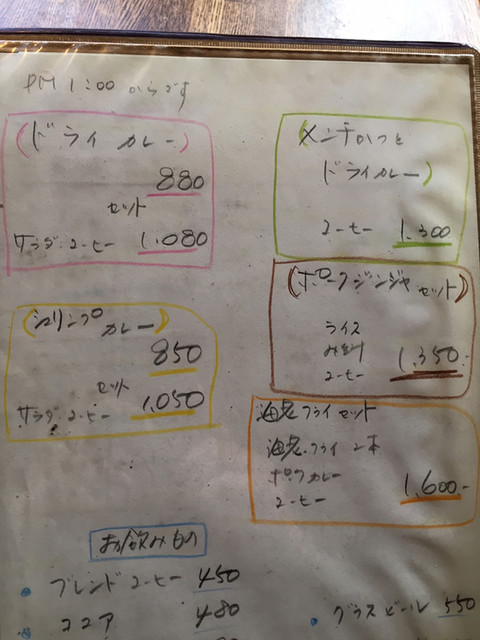 PM 1:00 からです
(ドライカレー)
880
セット
サラダ・コーヒー 1,080
(シュリンプ
カレー)
850
セット
サラダ・コーヒー 1,050
(メンチかつと
ドライカレー)
コーヒー 1,300
(ポークジンジャーセット)
ライス
みそ汁
コーヒー 1,350-
海老フライセット
海老フライ 2本
ポークカレー
コーヒー 1,600-
お飲みもの
ブレンドコーヒー 450
ココア 480
グラスビール 550